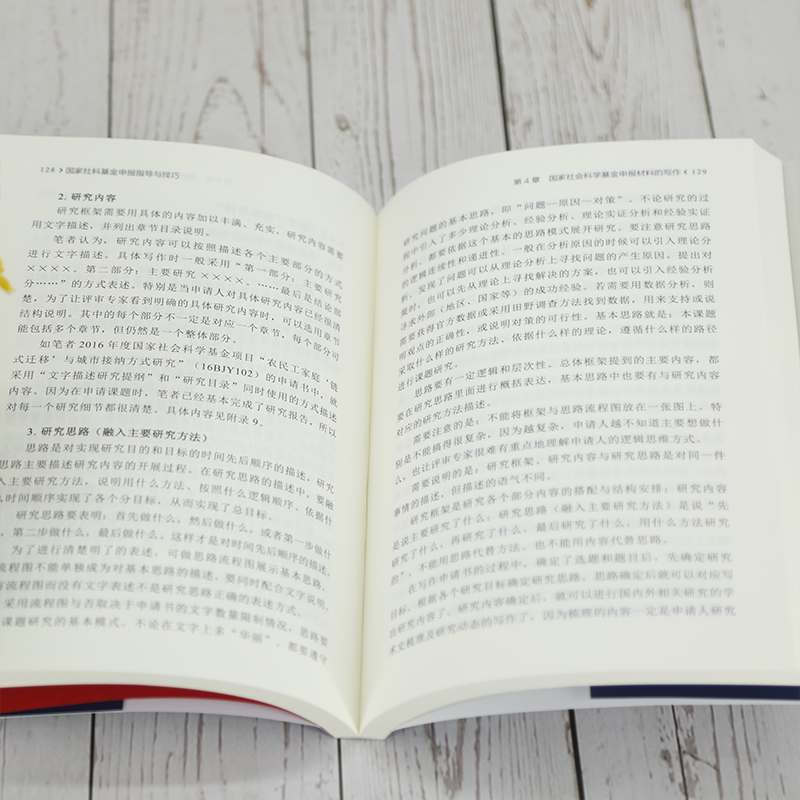 128 > 国家社科基金申报指导与技巧
2. 研究内容
研究框架需要用具体的内容加以丰满、充实，研究内容需要
用文字描述，并列出章节目录说明。
笔者认为，研究内容可以按照描述各个主要部分的方式
进行文字描述。具体写作时一般采用“第一部分，主要研究
××××。第二部分：主要研究××××。……最后是结论部
分……”的方式表述。特别是当申请人对具体研究内容已经很清
楚，为了让评审专家看到明确的具体研究内容时，可以选用章节
结构说明。其中的每个部分不一定是对应一个章节，每个部分可
能包括多个章节，但仍然是一个整体部分。
如笔者 2016 年度国家社会科学基金项目“农民工家庭‘链
式迁移’与城市接纳方式研究”（16BJY102）的申请书中，就
采用“文字描述研究提纲”和“研究目录”同时使用的方式描述
内容。因为在申请课题时，笔者已经基本完成了研究报告，所以
对每一个研究细节都很清楚。具体内容见附录 9。
3. 研究思路（融入主要研究方法）
思路是对实现研究目的和目标的时间先后顺序的描述，研究
思路主要描述研究内容的开展过程。在研究思路的描述中，要融
入主要研究方法，说明用什么方法、按照什么逻辑顺序，依据什
么时间顺序实现了各个分目标，从而实现了总目标。
研究思路要表明：首先做什么，然后做什么，或者第一步做什
，第二步做什么，最后做什么。这样才是对时间先后顺序的描述。
为了进行清楚明了的表述，可做思路流程图展示基本思路，
流程图不能单独成为对基本思路的描述，要同时配合文字说明。
有流程图而没有文字表述不是研究思路正确的表述方式。
采用流程图与否取决于申请书的文字数量限制情况，思路要
课题研究的基本模式。不论在文字上多“华丽”，都要遵守
第 4 章 国家社会科学基金申报材料的写作 < 129
研究问题的基本思路，即“问题—原因—对策”。不论研究的过
程中引入了多少理论分析、经验分析、理论实证分析和经验实证
分析，都要依据这个基本的思路模式展开研究。要注意研究思路
的逻辑连续性和递进性。一般在分析原因的时候可以引入理论分
析，发现了问题可以从理论分析上寻找问题的产生原因。提出对
策时，也可以先从理论上寻找解决的方案，也可以引入经验分析
寻求外部（地区、国家等）的成功经验。若需要用数据分析，则
需要获得官方数据或采用田野调查方法找到数据，用来支持或说
明观点的正确性，或说明对策的可行性。基本思路就是：本课题
采取什么样的研究方法、依据什么样的理论，遵循什么样的路径
进行课题研究。
思路要有一定逻辑和层次性。总体框架提到的主要内容，都
要在研究思路里面进行概括表达，基本思路中也要有与研究内容
对应的研究方法描述。
需要注意的是：不能将框架与思路流程图放在一张图上。特
别是不能搞得很复杂，因为越复杂，申请人越不知道主要想做什
么，也让评审专家很难有重点地理解申请人的逻辑思维方式。
需要说明的是，研究框架、研究内容与研究思路是对同一件
事情的描述，但描述的语气不同。
研究框架是研究各个部分内容的搭配与结构安排；研究内容
是说主要研究了什么；研究思路（融入主要研究方法）是说“先
研究了什么，再研究了什么，最后研究了什么，用什么方法研究
的”，不能用思路代替方法、也不能用内容代替思路。
在写作申请书的过程中，确定了选题和题目后，先确定研究
目标，根据各个研究目标确定研究思路，思路确定后就可以对应写
出研究内容了。研究内容确定后，就可以进行国内外相关研究的学
术史梳理及研究动态的写作了。因为梳理的内容一定是申请人研究